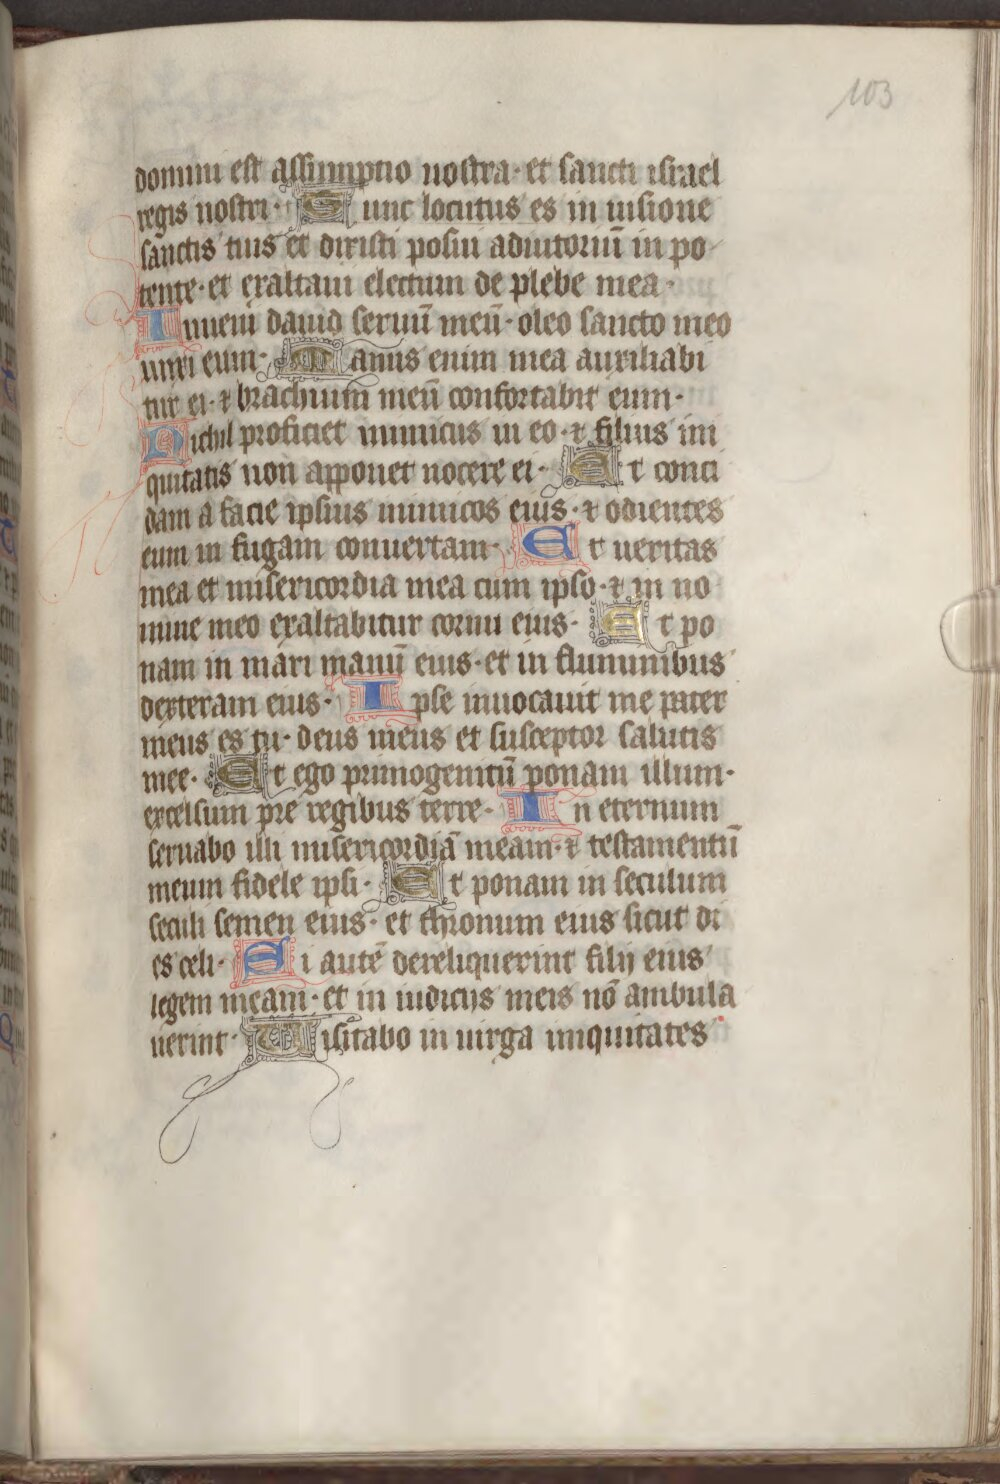 103
domini est assumptio nostra · et sancti israel
regis nostri · Tunc locutus es in uisione
sanctis tuis et dixisti posui adiutoriū in po
tente · et exaltaui electum de plebe mea ·
Inueni dauid seruū meū · oleo sancto meo
unxi eum · Manus enim mea auxiliabi
tur ei · ⁊ brachium meū confortabit eum ·
Nichil proficiet inimicus in eo · ⁊ filius ini
quitatis non apponet nocere ei · Et conci
dam a facie ipsius inimicos eius · ⁊ odientes
eum in fugam conuertam · Et ueritas
mea et misericordia mea cum ipso · ⁊ in no
mine meo exaltabitur cornu eius · Et po
nam in mari manū eius · et in fluminibus
dexteram eius · Ipse inuocauit me pater
meus es tu · deus meus et susceptor salutis
mee · Et ego primogenitū ponam illum ·
excelsum pre regibus terre · In eternum
seruabo illi misericordiā meam · ⁊ testamentū
meum fidele ipsi · Et ponam in seculum
seculi semen eius · et thronum eius sicut di
es celi · Si autē dereliquerint filij eius
legem meam · et in iudicijs meis nō ambula
uerint · Uisitabo in uirga iniquitates